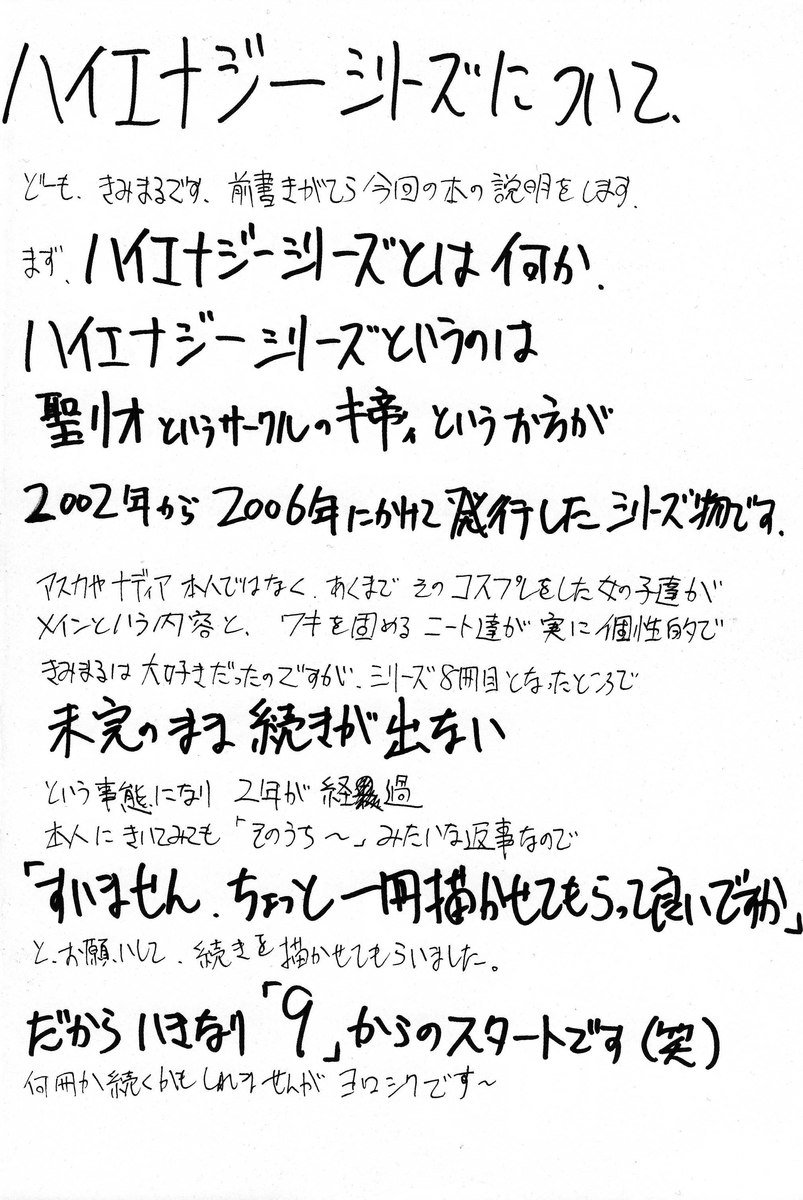 ハイエナジーシリーズについて、
どーも、きみまるです、前書きがてら今回の本の説明をします、
まず、ハイエナジーシリーズとは何か、
ハイエナジーシリーズというのは
聖リオというサークルのキ帝ィというお方が
2002年から2006年にかけて発行したシリーズ物です、
アスカやナディア本人ではなく、あくまでそのコスプレをした女の子達が
メインという内容と、ワキを固めるニート達が実に個性的で
きみまるは大好きだったのですが、シリーズ8冊目となったところで
未完のまま続きが出ない
という事態になり 2年が経過
本人にきいてみても「そのうち〜」みたいな返事なので
「すいません、ちょっと一冊描かせてもらって良いですか」
と、お願いして、続きを描かせてもらいました。
だからいきなり「9」からのスタートです(笑)
何冊か続くかもしれませんがヨロシクです〜